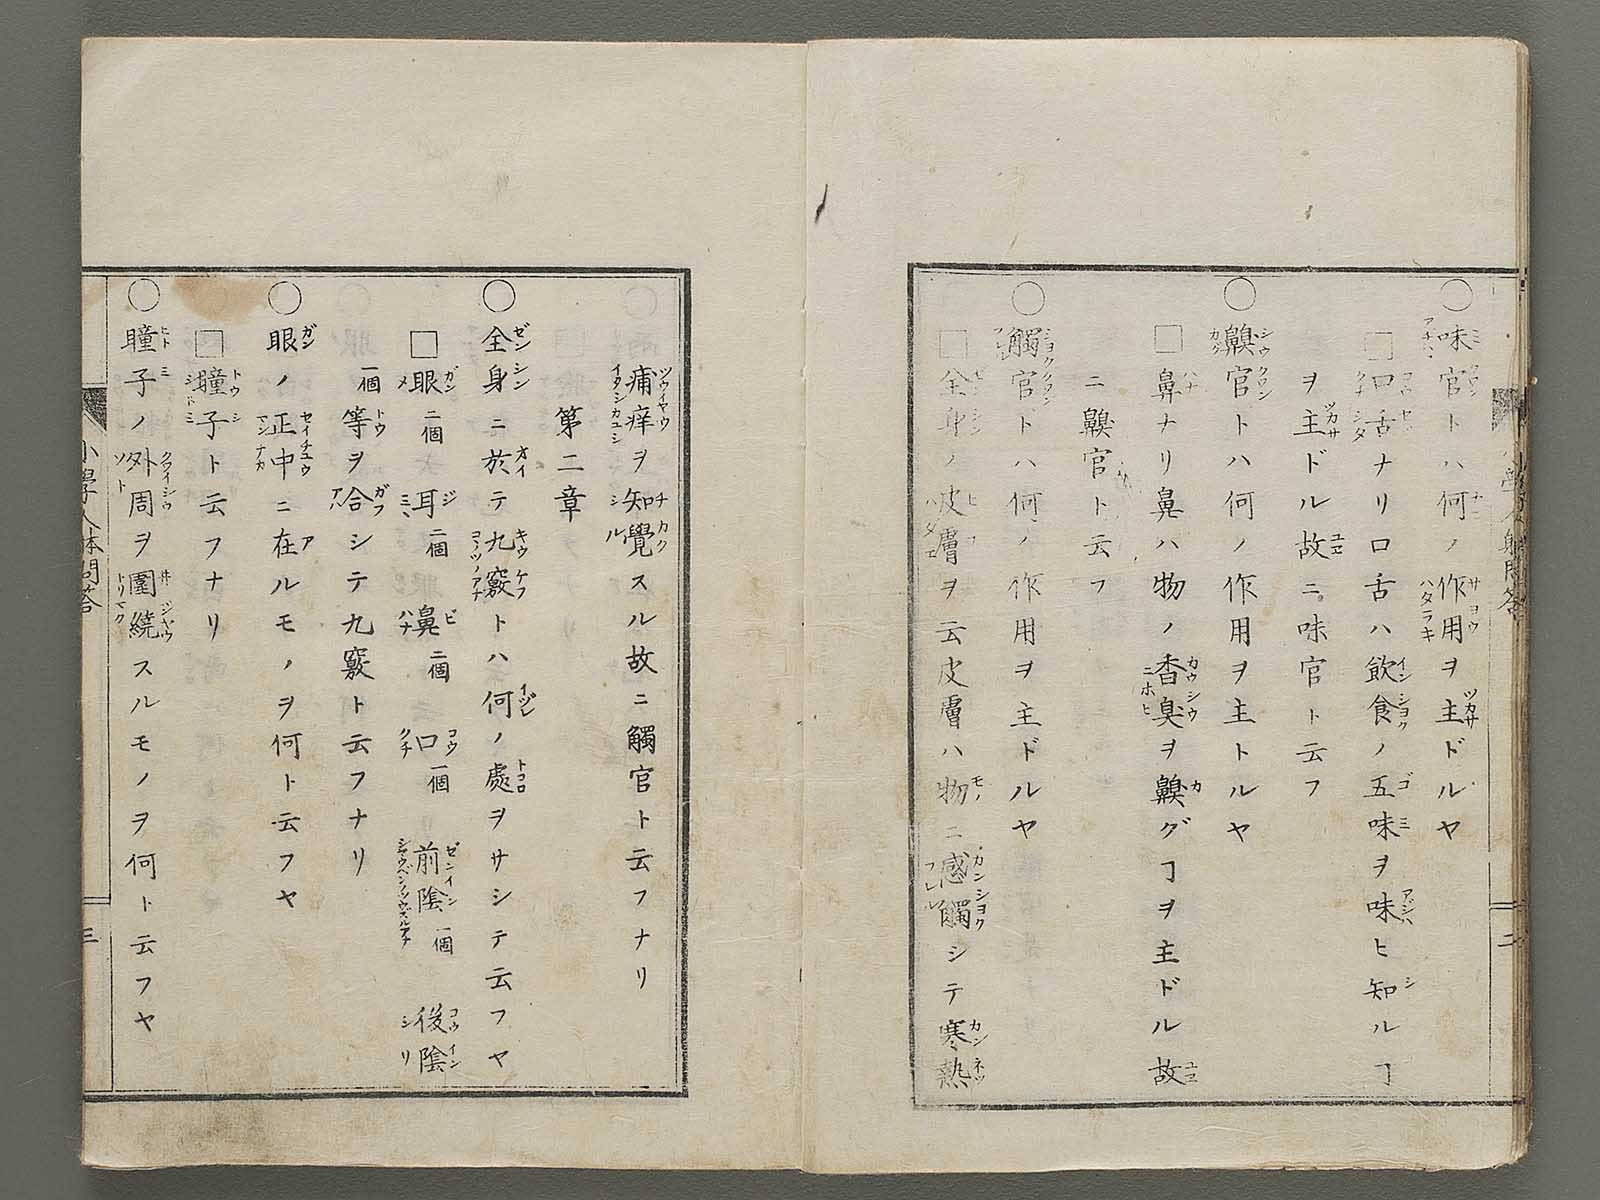 ○味官トハ何ノ作用ヲ主ドルヤ
□口舌ナリ口舌ハ飲食ノ五味ヲ味ヒ知ルヿ
ヲ主ドル故ニ味官ト云フ
○齅官トハ何ノ作用ヲ主トルヤ
□鼻ナリ鼻ハ物ノ香臭ヲ齅グヿヲ主ドル故
ニ齅官ト云フ
○觸官トハ何ノ作用ヲ主ドルヤ
□全身ノ皮膚ヲ云皮膚ハ物ニ感觸シテ寒熱
痛痒ヲ知覺スル故ニ觸官ト云フナリ
第二章
○全身ニ於テ九竅トハ何ノ處ヲサシテ云フヤ
□眼二個耳二個鼻二個口一個前陰一個後陰
一個等ヲ合シテ九竅ト云フナリ
○眼ノ正中ニ在ルモノヲ何ト云フヤ
□瞳子ト云フナリ
○瞳子ノ外周ヲ圍繞スルモノヲ何ト云フヤ
小學人体問答
三